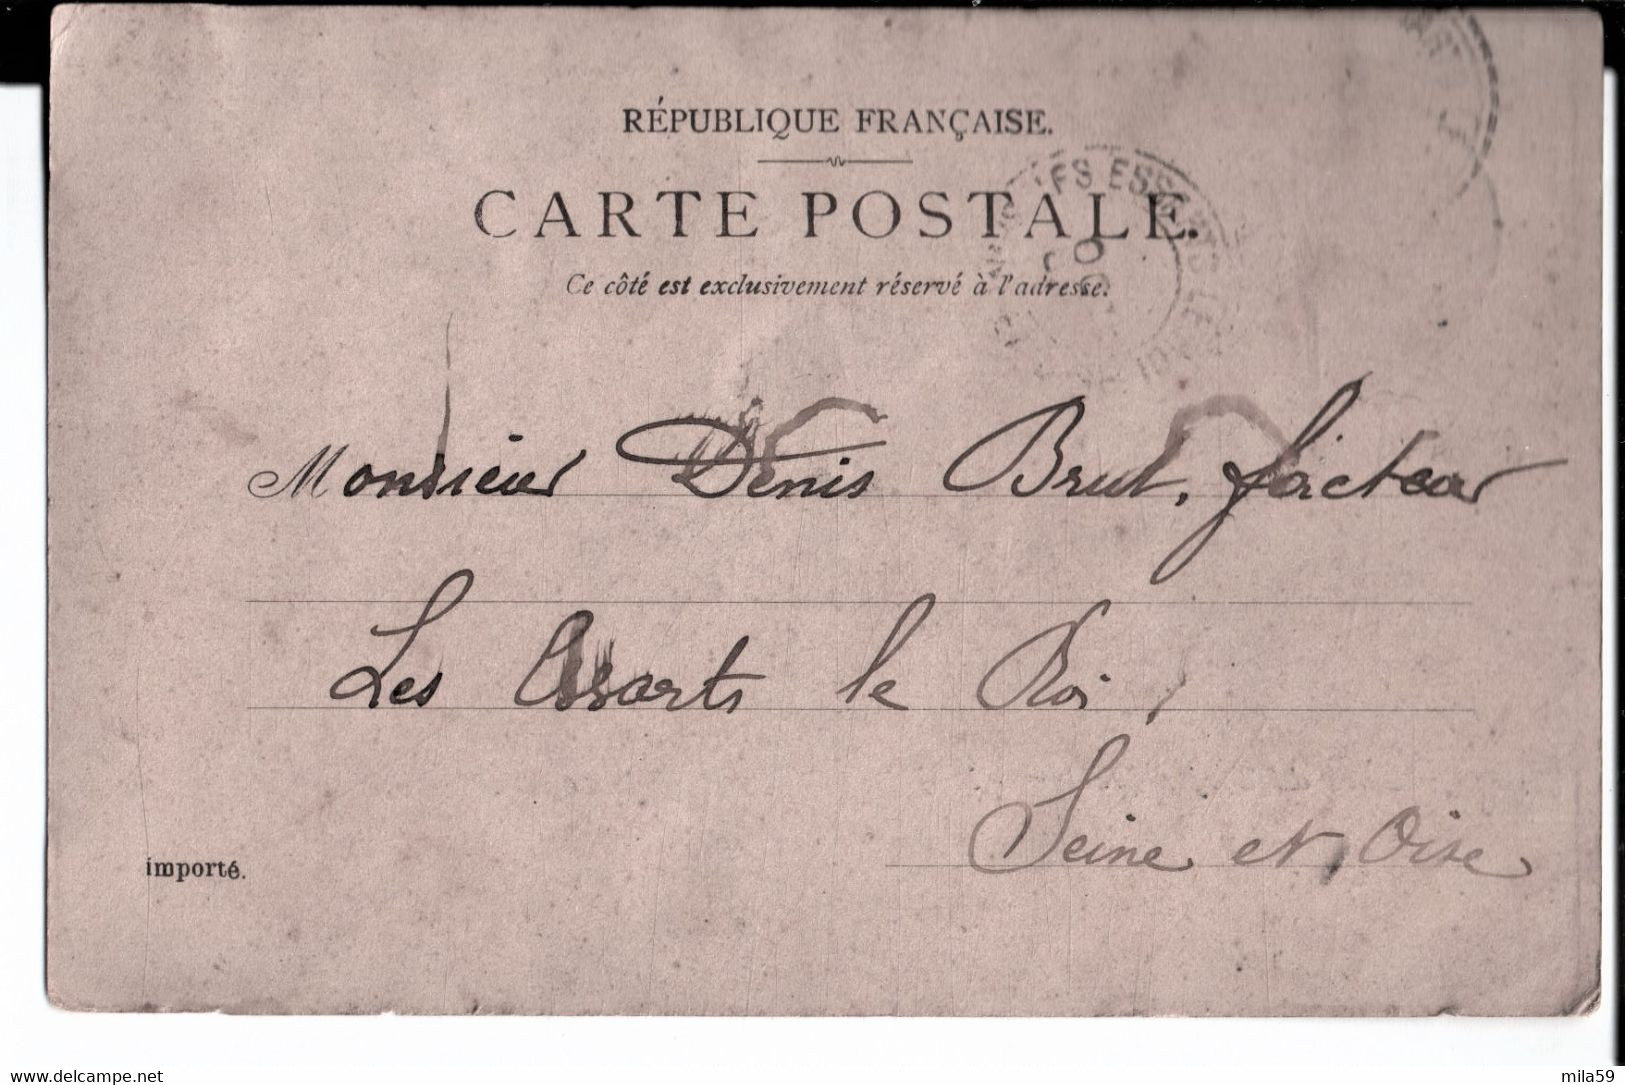 RÉPUBLIQUE FRANÇAISE.
CARTE POSTALE.
Ce côté est exclusivement réservé à l'adresse.
Monsieur Denis Brut, facteur
Les Essarts le Roi,
Seine et Oise
importé.
delcampe.net
mila59